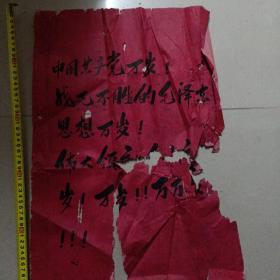 中国共产党万岁！
战无不胜的毛泽东
思想万岁！
伟大领
岁！万岁！！万
！！！